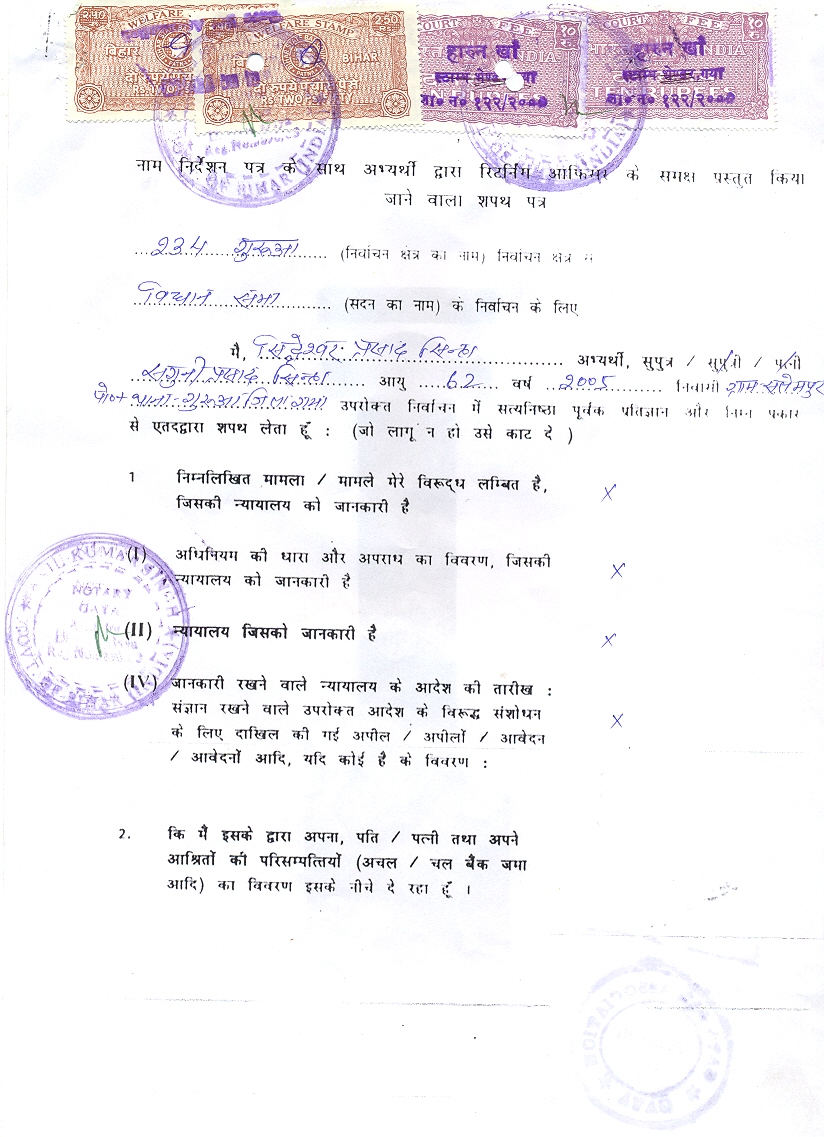 WELFARE
WELFARE STAMP
COURT FEE
COURT FEE
2.50
बिहार
BIHAR
INDIA
हारुन खाँ
हारुन खाँ
दो रुपये पचास पैसे
RS. TWO FIFTY
स्टाम्प भेण्डर गया
स्टाम्प भेण्डर गया
ला० न० १२२/२०००
ला० न० १२२/२०००
TEN RUPEES
नाम निर्देशन पत्र के साथ अभ्यर्थी द्वारा रिटर्निंग आफिसर के समक्ष प्रस्तुत किया
जाने वाला शपथ पत्र
234 गुरूआ (निर्वाचन क्षेत्र का नाम) निर्वाचन क्षेत्र से
विधान सभा (सदन का नाम) के निर्वाचन के लिए
मै, सिद्धेश्वर प्रसाद सिन्हा अभ्यर्थी, सुपुत्र / सुपुत्री / पत्नी
सगुनी प्रसाद सिन्हा आयु 62 वर्ष 2005 निवासी ग्राम-सलेमपुर
पो०+थाना-गुरूआ जिला गया उपरोक्त निर्वाचन में सत्यनिष्ठा पूर्वक प्रतिज्ञान और निम्न प्रकार
से एतदद्वारा शपथ लेता हूँ : (जो लागू न हो उसे काट दे )
1 निम्नलिखित मामला / मामले मेरे विरूद्ध लम्बित है, x
जिसकी न्यायालय को जानकारी है
(I) अधिनियम की धारा और अपराध का विवरण, जिसकी x
न्यायालय को जानकारी है
(II) न्यायालय जिसको जानकारी है x
(IV) जानकारी रखने वाले न्यायालय के आदेश की तारीख :
संज्ञान रखने वाले उपरोक्त आदेश के विरूद्ध संशोधन x
के लिए दाखिल की गई अपील / अपीलों / आवेदन
/ आवेदनों आदि, यदि कोई है के विवरण :
ANIL KUMAR SINGH
NOTARY
GAYA
GOVT. OF BIHAR (INDIA)
2. कि मैं इसके द्वारा अपना, पति / पत्नी तथा अपने
आश्रितों की परिसम्पत्तियों (अचल / चल बैंक जमा
आदि) का विवरण इसके नीचे दे रहा हूँ ।